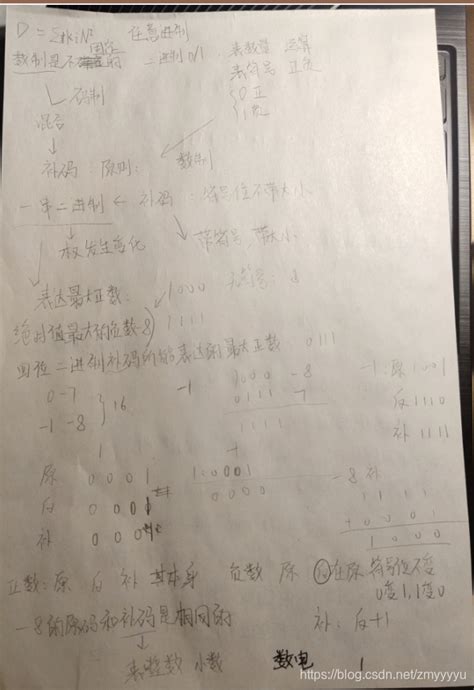 D = ΣKiNⁱ 任意进制
数制是不固定的 二进制 0/1 表数量 运算
表符号 正负
码制 {0正
混合 {1负
补码：原则： 数制
一串二进制 ← 补码：符号位不带大小
权发生变化 带符号，带大小
表达最大正数： 1000 无符号：8
绝对值最大的负数-8 1111
四位二进制补码所能表达的最大正数 0111
0-7 } 16 -1 1000 -8 -1：原 1001
-1 -8 0111 7 反 1110
1111 补 1111
1 -1
原 0001 10001 -8 补
反 0001 0000 1111
补 0001 + 0001
1000
正数：原 反 补 其本身 负数 原 反 在原 符号位不变
0变1, 1变0
-8的原码和补码是相同的 补：反+1
表整数 小数 数电 1
https://blog.csdn.net/zmyyyyu